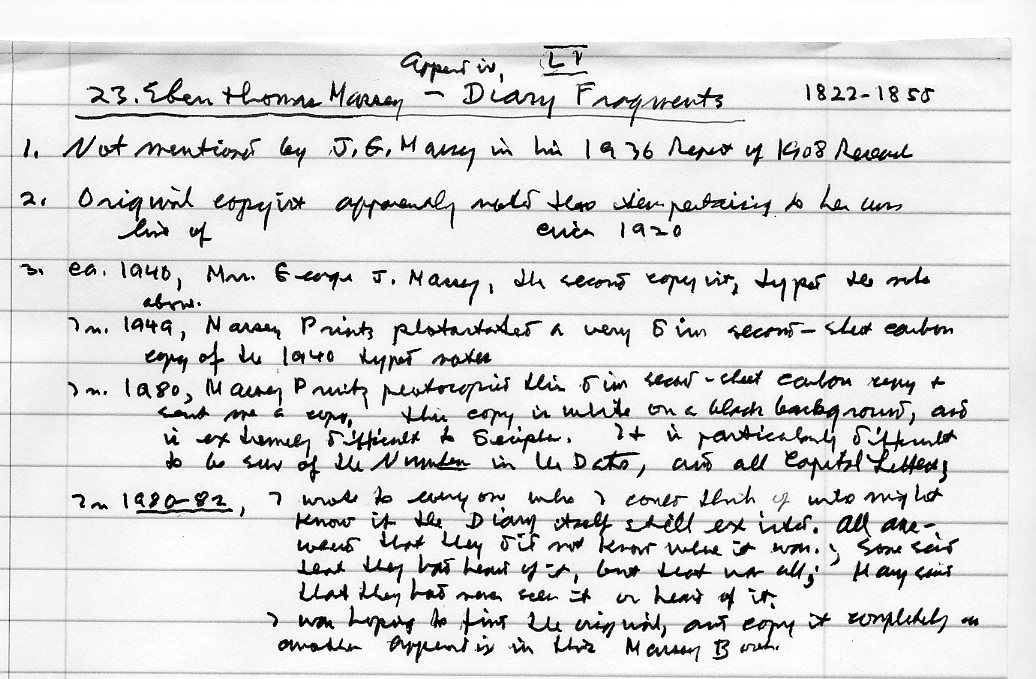 Appendix, LV
23. Eben Thomas Massey – Diary Fragments 1822-1855
1. Not mentioned by J. G. Massey in his 1936 Report of 1908 Research
2. Original copyist apparently noted item pertaining to her own
line of circa 1920
3. ca. 1940, Mrs. George J. Massey, the second copyist, typed the note
above.
In. 1949, Massey Printz photostated a very dim second-sheet carbon
copy of the 1940 typed notes
In. 1980, Massey Printz photocopied this dim second-sheet carbon copy +
sent me a copy, this copy is white on a black background, and
is extremely difficult to decipher. It is particularly difficult
to be sure of the Number in the Dates, and all Capital Letters;
In 1980-82, I wrote to every one who I could think of who might
know if the Diary itself still existed. All ans-
wered that they did not know where it was.; Some said
that they had heard of it, but that was all; Many said
that they had never seen it or heard of it.
I was hoping to find the original, and copy it completely as
another Appendix in this Massey Book.